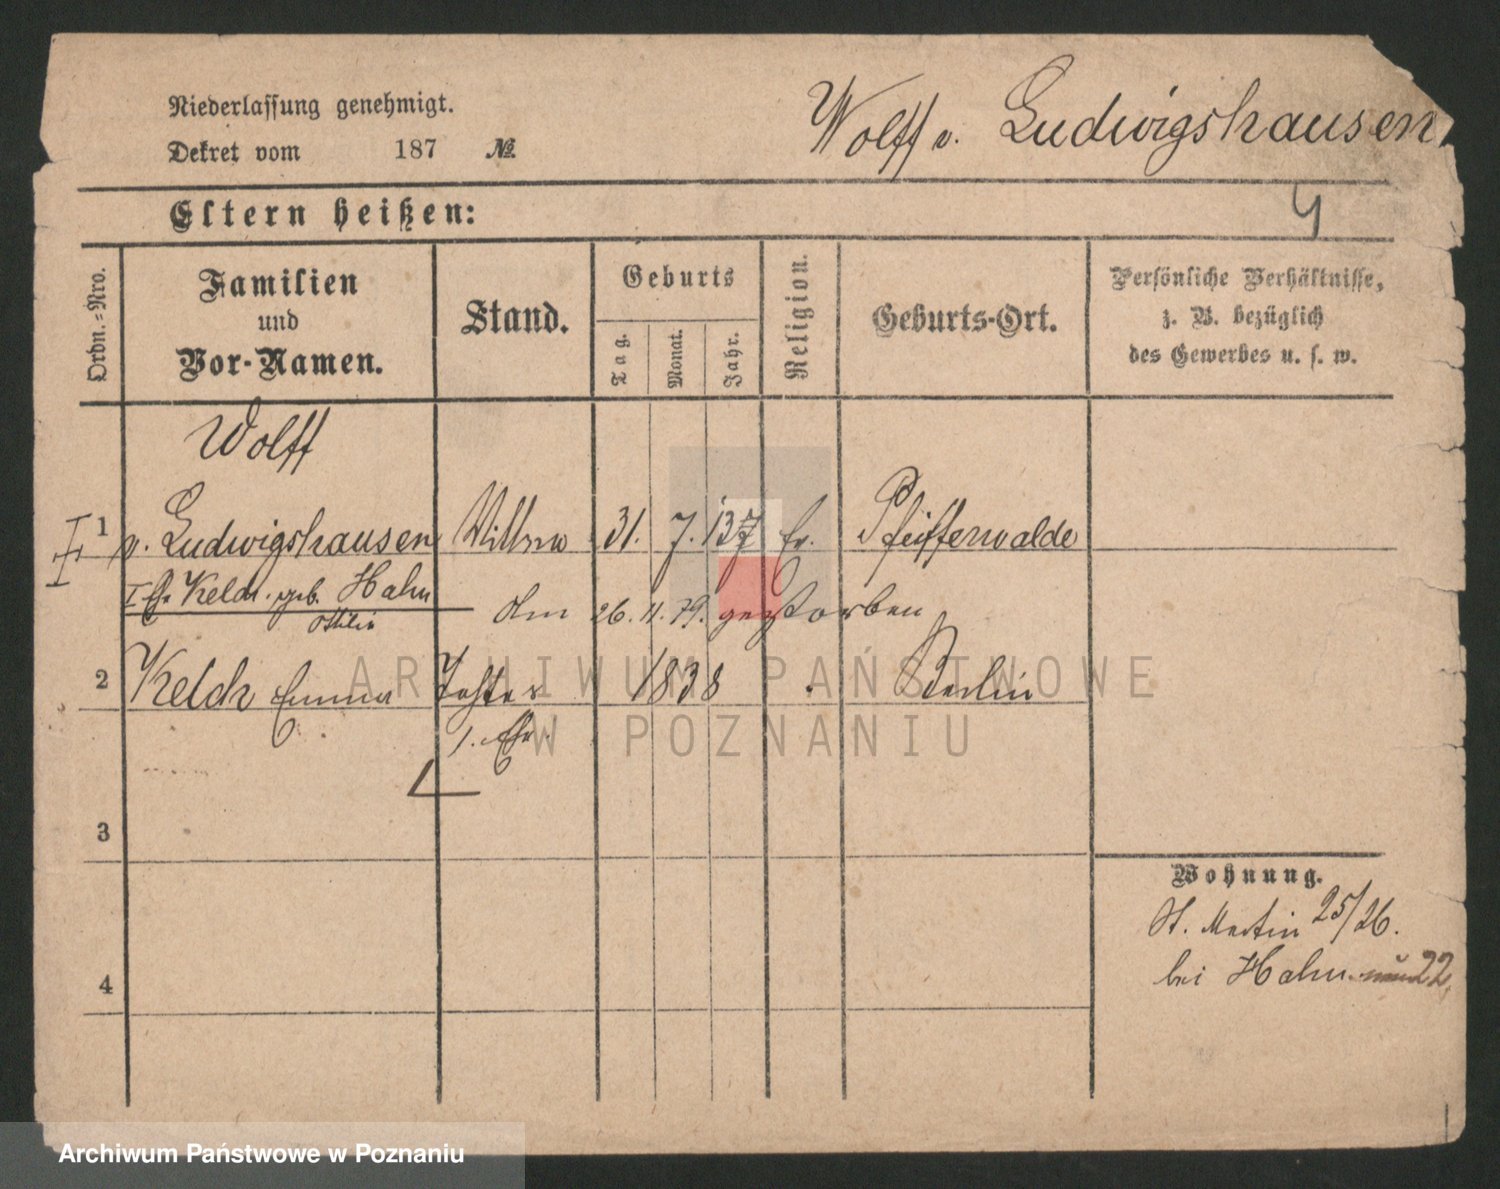 Niederlassung genehmigt.
Dekret vom 187 №
Wolff v. Ludwigshausen
4
Eltern heißen:
Ordn.-Nro.
Familien
und
Vor-Namen.
Stand.
Geburts
Tag.
Monat.
Jahr.
Religion.
Geburts-Ort.
Persönliche Verhältnisse,
z. B. bezüglich
des Gewerbes u. s. w.
Wolff
1 v. Ludwigshausen 31. 7. 37 Pfeifferwalde
Keldr. geb. Hahn
Ottilie
26. 11. 79. gestorben
2 Kelch Emma Tochter 1838 Berlin
1. Ehe
3
4
Wohnung.
St. Martin 25/26.
bei Hahn 22
ARCHIWUM PAŃSTWOWE
W POZNANIU
Archiwum Państwowe w Poznaniu